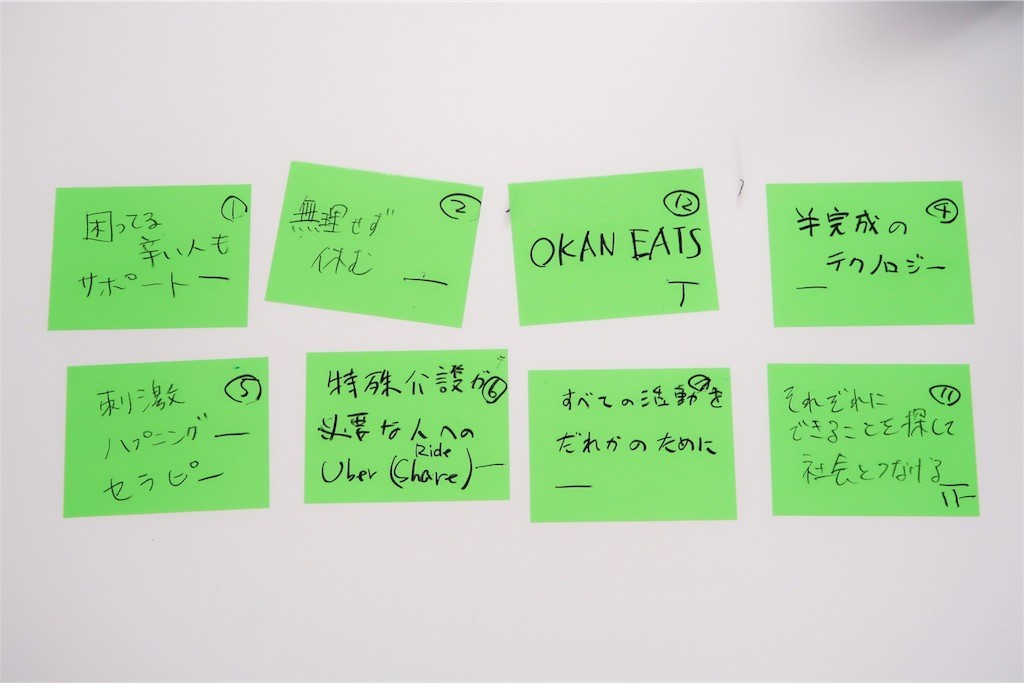 ①
困ってる
辛い人も
サポート 一
②
無理せず
休む
一
⑫
OKAN EATS
T
④
半完成の
テクノロジー
一
⑤
刺激
ハプニング 一
セラピー
特殊介護が⑥
必要な人への
Ride
Uber (Share) 一
すべての活動を
だれかのために
一
⑪
それぞれに
できることを探して
社会とつなげる